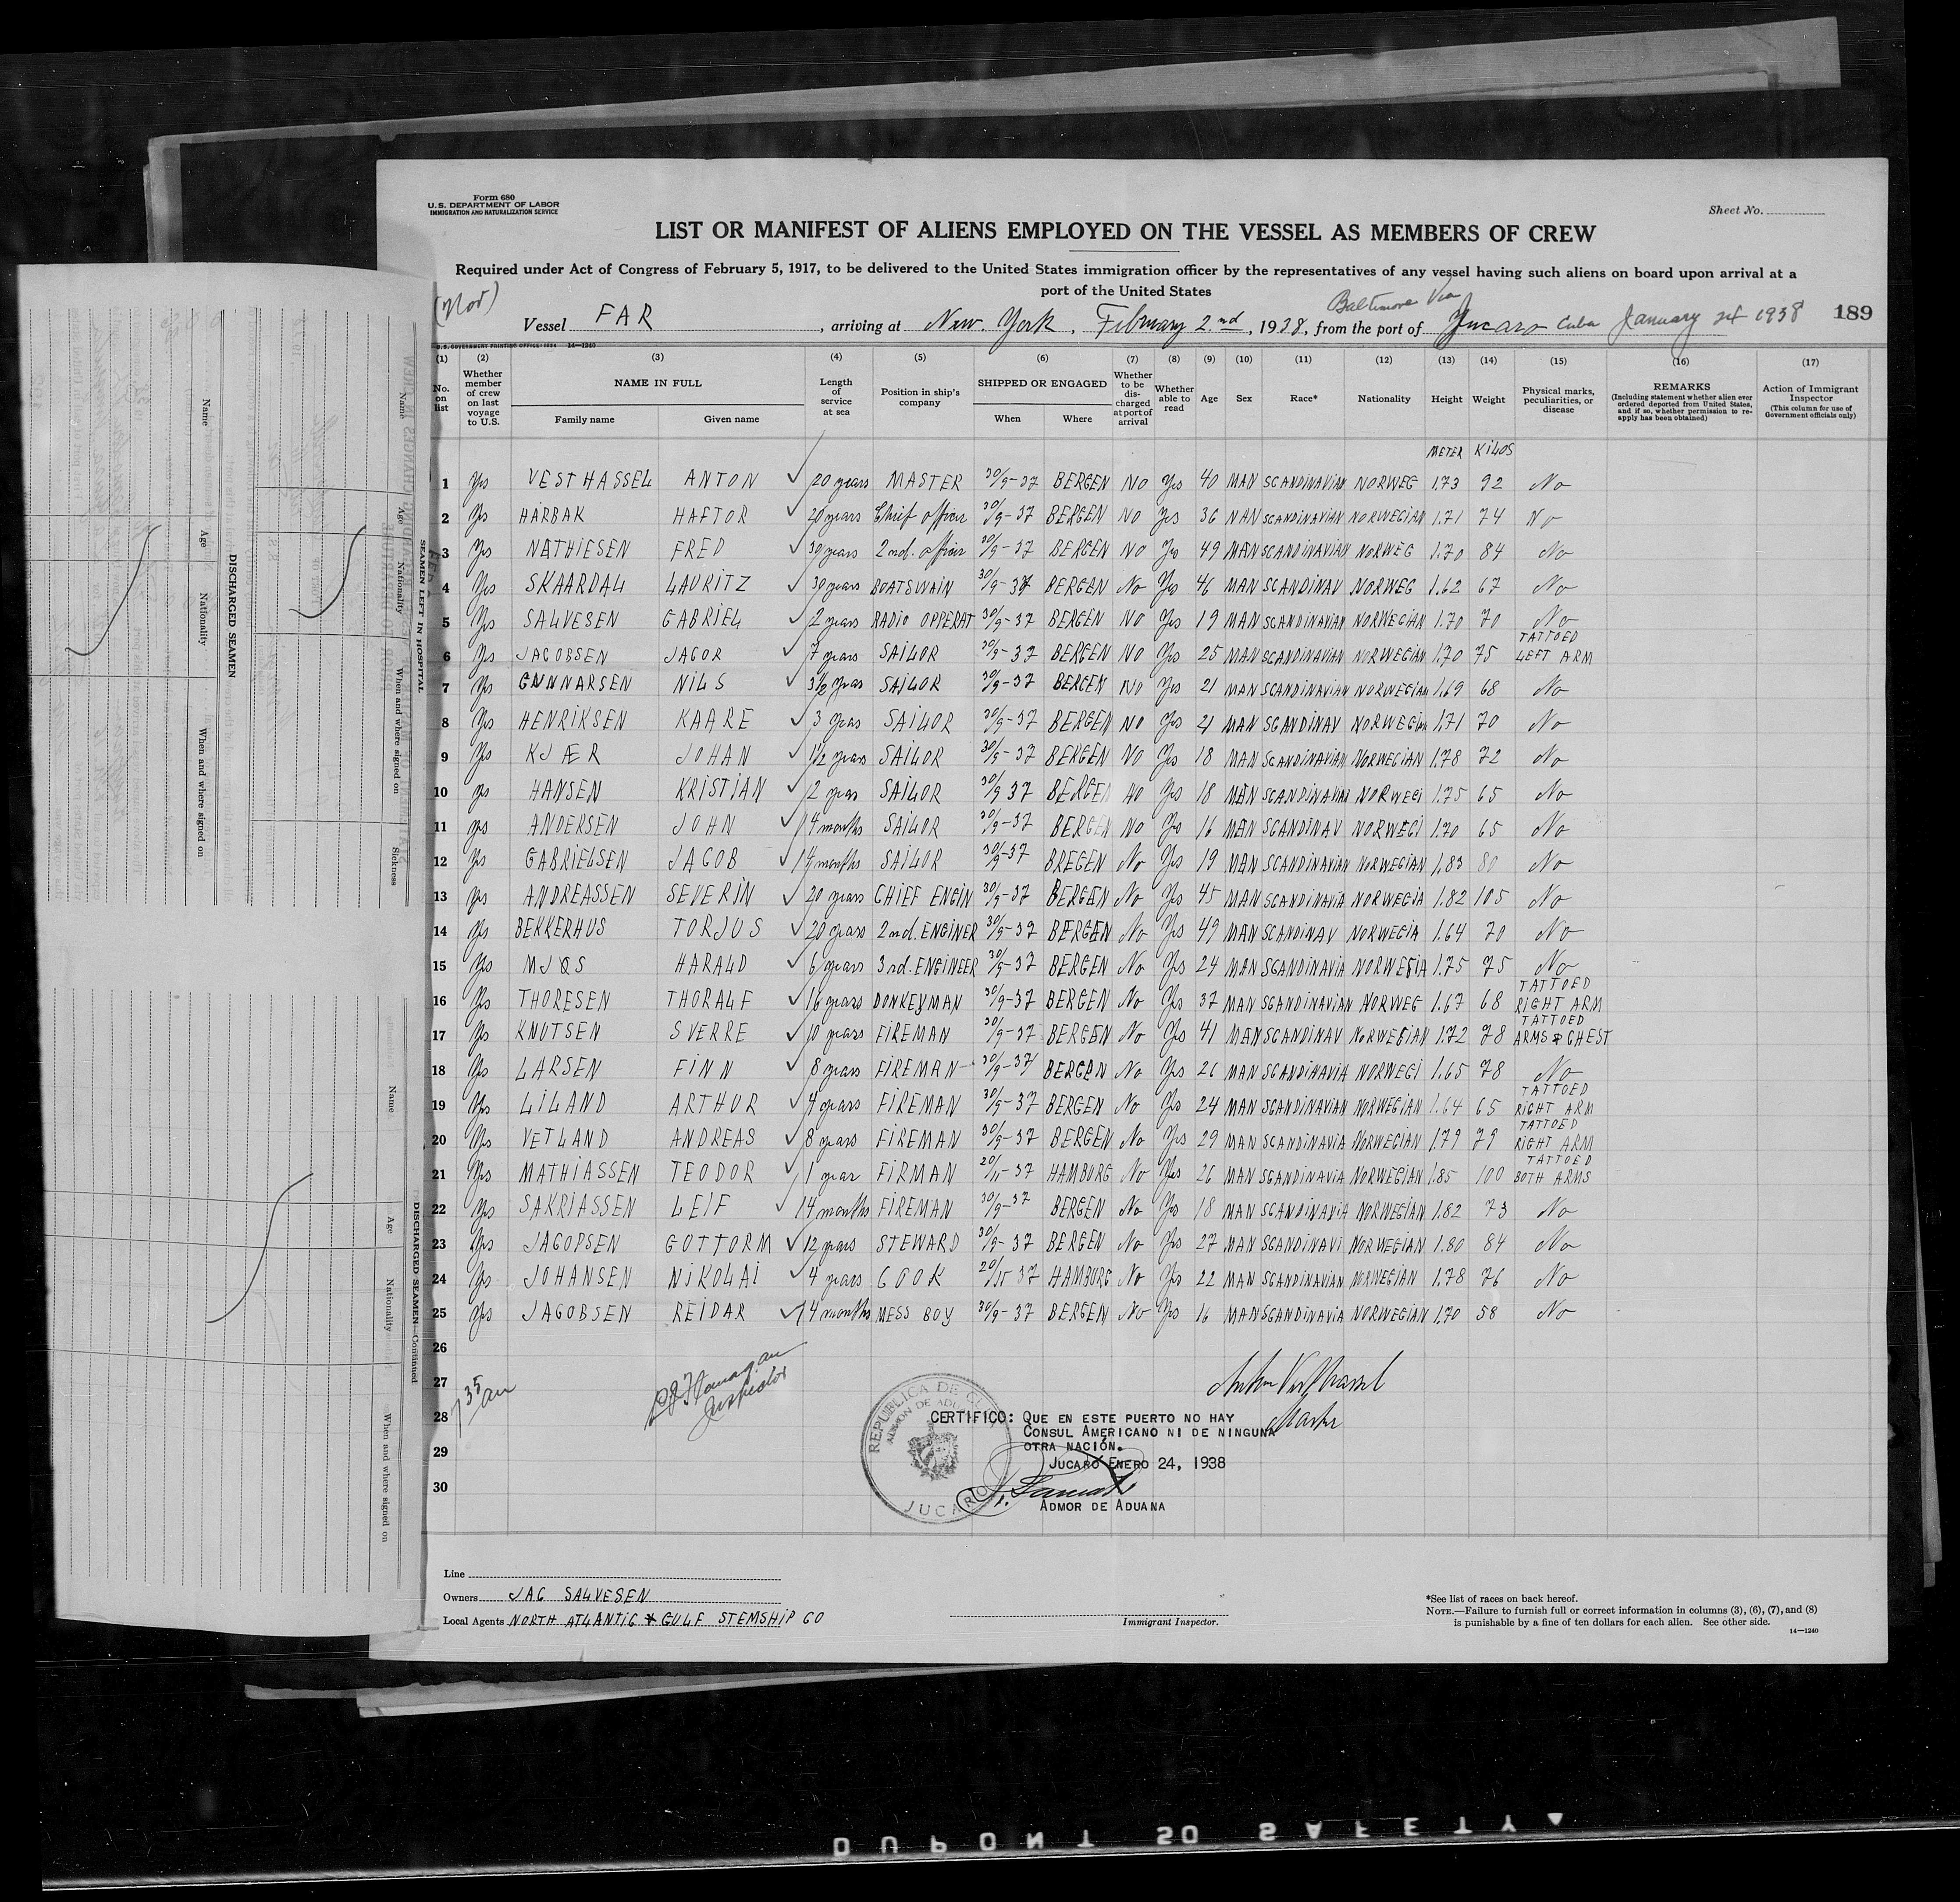 Form 680
U.S. DEPARTMENT OF LABOR
IMMIGRATION AND NATURALIZATION SERVICE
Sheet No.
LIST OR MANIFEST OF ALIENS EMPLOYED ON THE VESSEL AS MEMBERS OF CREW
Required under Act of Congress of February 5, 1917, to be delivered to the United States immigration officer by the representatives of any vessel having such aliens on board upon arrival at a
port of the United States
(Nor)
Baltimore Via
Vessel FAR, arriving at New York, February 2nd, 1938, from the port of Jucaro Cuba January 24 1938 189
U.S. GOVERNMENT PRINTING OFFICE: 1934 14—1240
(1) (2) (3) (4) (5) (6) (7) (8) (9) (10) (11) (12) (13) (14) (15) (16) (17)
No. on list
Whether member of crew on last voyage to U.S.
NAME IN FULL
Family name Given name
Length of service at sea
Position in ship's company
SHIPPED OR ENGAGED
When Where
Whether to be discharged at port of arrival
Whether able to read
Age
Sex
Race*
Nationality
Height
Weight
Physical marks, peculiarities, or disease
REMARKS
(Including statement whether alien ever ordered deported from United States, and if so, whether permission to reapply has been obtained)
Action of Immigrant Inspector
(This column for use of Government officials only)
METER KILOS
1 Yes VESTHASSEL ANTON 20 years MASTER 30/9-37 BERGEN NO Yes 40 MAN SCANDINAVIAN NORWEG 1.73 92 No
2 Yes HARBAK HAFTOR 20 years Chief officer 30/9-37 BERGEN NO Yes 36 MAN SCANDINAVIAN NORWEGIAN 1.71 74 No
3 Yes NATHIESEN FRED 30 years 2nd. officer 30/9-37 BERGEN NO Yes 49 MAN SCANDINAVIAN NORWEG 1.70 84 No
4 Yes SKAARDAL LAURITZ 30 years BOATSWAIN 30/9-37 BERGEN No Yes 46 MAN SCANDINAV NORWEG 1.62 67 No
5 Yes SALVESEN GABRIEL 2 years RADIO OPPERAT 30/9-37 BERGEN NO Yes 19 MAN SCANDINAVIAN NORWEGIAN 1.70 70 No
6 Yes JACOBSEN JAGOR 7 years SAILOR 30/9-37 BERGEN NO Yes 25 MAN SCANDINAVIAN NORWEGIAN 1.70 75 TATTOED LEFT ARM
7 Yes GUNNARSEN NILS 3 1/2 years SAILOR 30/9-37 BERGEN NO Yes 21 MAN SCANDINAVIAN NORWEGIAN 1.69 68 No
8 Yes HENRIKSEN KAARE 3 years SAILOR 30/9-37 BERGEN NO Yes 21 MAN SCANDINAV NORWEGIAN 1.71 70 No
9 Yes KJÆR JOHAN 1 1/2 years SAILOR 30/9-37 BERGEN NO Yes 18 MAN SCANDINAVIAN NORWEGIAN 1.78 72 No
10 Yes HANSEN KRISTIAN 2 years SAILOR 30/9 37 BERGEN NO Yes 18 MAN SCANDINAVIAN NORWEGI 1.75 65 No
11 Yes ANDERSEN JOHN 4 months SAILOR 30/9-37 BERGEN NO Yes 16 MAN SCANDINAV NORWEGI 1.70 65 No
12 Yes GABRIELSEN JACOB 4 months SAILOR 30/9-37 BREGEN No Yes 19 MAN SCANDINAVIAN NORWEGIAN 1.83 80 No
13 Yes ANDREASSEN SEVERIN 20 years CHIEF ENGIN 30/9-37 BERGEN No Yes 45 MAN SCANDINAVIA NORWEGIA 1.82 105 No
14 Yes BEKKERHUS TORJUS 20 years 2nd. ENGINER 30/9-37 BERGEN No Yes 49 MAN SCANDINAV NORWEGIA 1.64 70 No
15 Yes MJØS HARALD 6 years 3rd. ENGINEER 30/9-37 BERGEN No Yes 24 MAN SCANDINAVIA NORWEGIA 1.75 75 No
16 Yes THORESEN THORALF 16 years DONKEYMAN 30/9-37 BERGEN No Yes 37 MAN SCANDINAVIAN NORWEG 1.67 68 TATTOED RIGHT ARM
17 Yes KNUTSEN SVERRE 10 years FIREMAN 30/9-37 BERGEN No Yes 41 MAN SCANDINAV NORWEGIAN 1.72 78 TATTOED ARMS & CHEST
18 Yes LARSEN FINN 8 years FIREMAN 30/9-37 BERGEN No Yes 26 MAN SCANDINAVIA NORWEGI 1.65 78 No
19 Yes LILAND ARTHUR 4 years FIREMAN 30/9-37 BERGEN No Yes 24 MAN SCANDINAVIAN NORWEGIAN 1.64 65 TATTOED RIGHT ARM
20 Yes VETLAND ANDREAS 8 years FIREMAN 30/9-37 BERGEN No Yes 29 MAN SCANDINAVIA NORWEGIAN 1.79 79 TATTOED RIGHT ARM
21 Yes MATHIASSEN TEODOR 1 year FIRMAN 20/11-37 HAMBURG No Yes 26 MAN SCANDINAVIA NORWEGIAN 1.85 100 TATTOED BOTH ARMS
22 Yes SAKRIASSEN LEIF 4 months FIREMAN 30/9-37 BERGEN No Yes 18 MAN SCANDINAVIA NORWEGIAN 1.82 73 No
23 Yes JACOPSEN GOTTORM 12 years STEWARD 30/9-37 BERGEN No Yes 27 MAN SCANDINAVI NORWEGIAN 1.80 84 No
24 Yes JOHANSEN NIKOLAI 4 years COOK 20/11 37 HAMBURG No Yes 22 MAN SCANDINAVIAN NORWEGIAN 1.78 76 No
25 Yes JACOBSEN REIDAR 4 months MESS BOY 30/9-37 BERGEN No Yes 16 MAN SCANDINAVIA NORWEGIAN 1.70 58 No
26
27
28
29
30
7 35 am
Flanagan
Inspector
Anton Vesthassel
Master
REPUBLICA DE CUBA
ADMON DE ADUANA
JUCARO
CERTIFICO: QUE EN ESTE PUERTO NO HAY
CONSUL AMERICANO NI DE NINGUNA
OTRA NACIÓN.
JUCARO ENERO 24, 1938
ADMOR DE ADUANA
Line
Owners JAC SALVESEN
Local Agents NORTH ATLANTIC & GULF STEMSHIP CO
Immigrant Inspector.
*See list of races on back hereof.
NOTE.—Failure to furnish full or correct information in columns (3), (6), (7), and (8)
is punishable by a fine of ten dollars for each alien. See other side.
14—1240
SEAMEN LEFT IN HOSPITAL
Name Age Nationality When and where signed on Sickness
DISCHARGED SEAMEN
Name Age Nationality When and where signed on
DISCHARGED SEAMEN—Continued
Name Age Nationality When and where signed on
DUPONT SO SAFETY